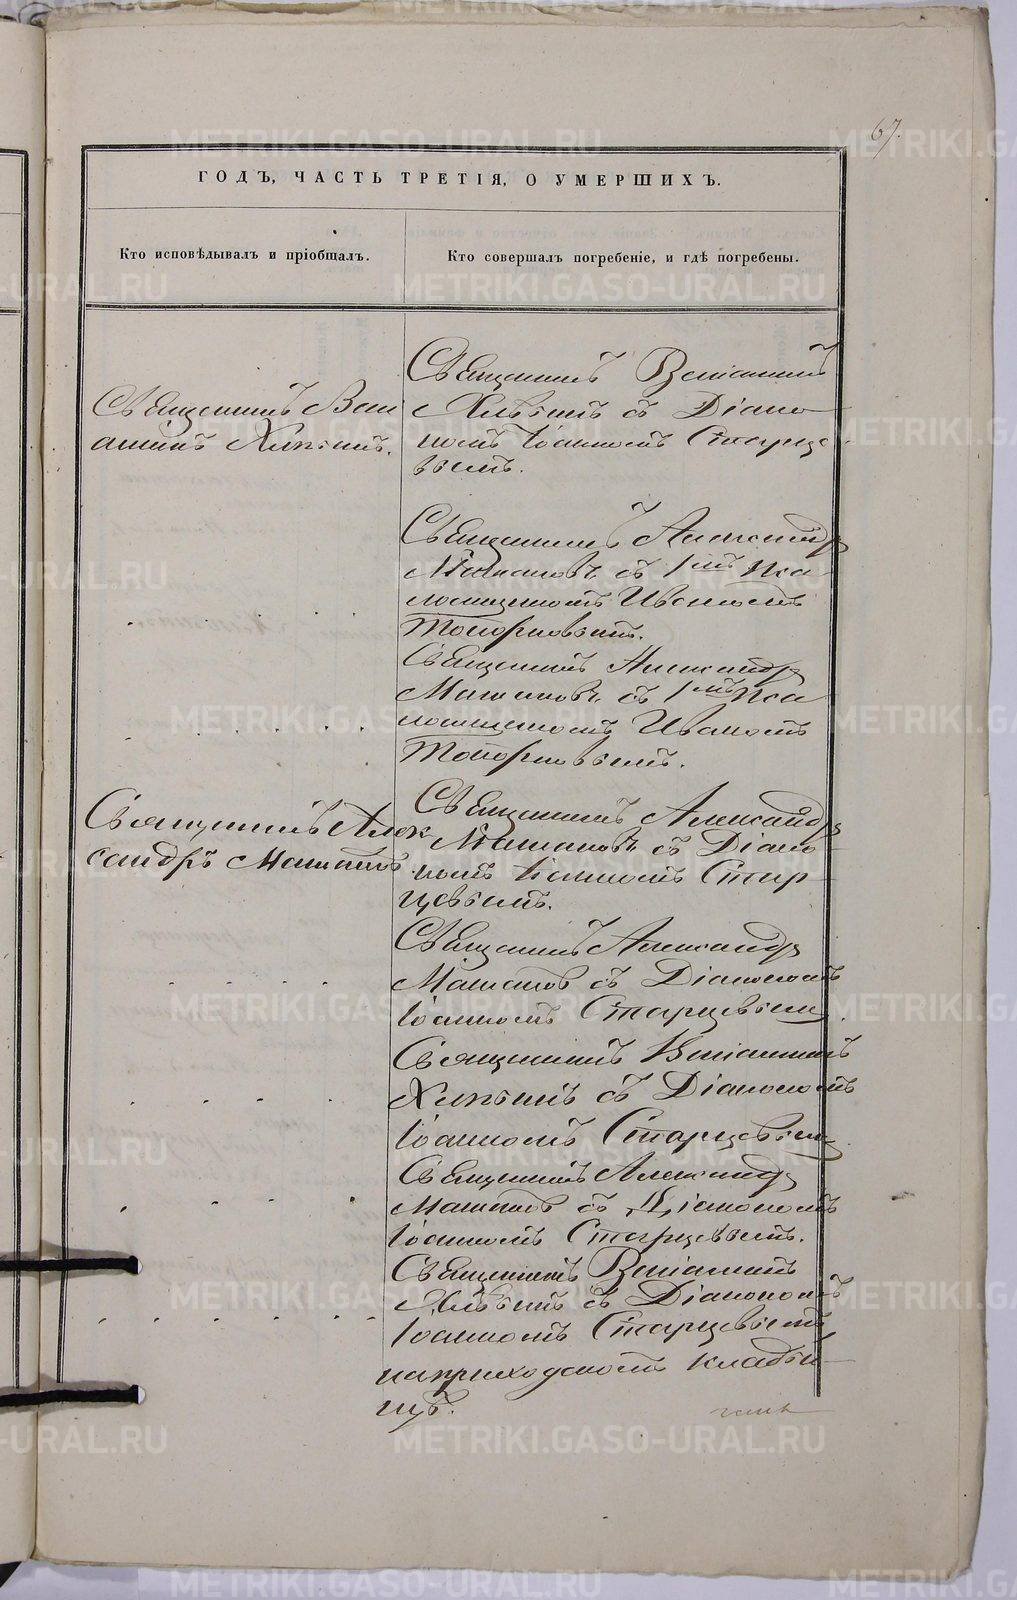 67.
ГОДЪ, ЧАСТЬ ТРЕТІЯ, О УМЕРШИХЪ.
Кто исповѣдывалъ и пріобщалъ.
Кто совершалъ погребеніе, и гдѣ погребены.
Священникъ Вени
аминъ
Священникъ Веніаминъ
съ Діако
номъ Іоанномъ Старце
вымъ.
Священникъ Александръ
съ 1мъ Пса
ломщикомъ Иваномъ
Топорковымъ.
Священникъ Александръ
съ 1мъ Пса
ломщикомъ Иваномъ
Топорковымъ.
Священникъ Алек
сандръ
Священникъ Александръ
съ Діако
номъ Іоанномъ Стар
цевымъ.
Священникъ Александръ
съ Діакономъ
Іоанномъ Старцевым
Священникъ Веніаминъ
съ Діакономъ
Іоанномъ Старцевым
Священникъ Александръ
съ Діакономъ
Іоанномъ Старцевымъ.
Священникъ Веніаминъ
съ Діакономъ
Іоанномъ Старцевымъ
на приходскомъ кладби
щѣ.
METRIKI.GASO-URAL.RU